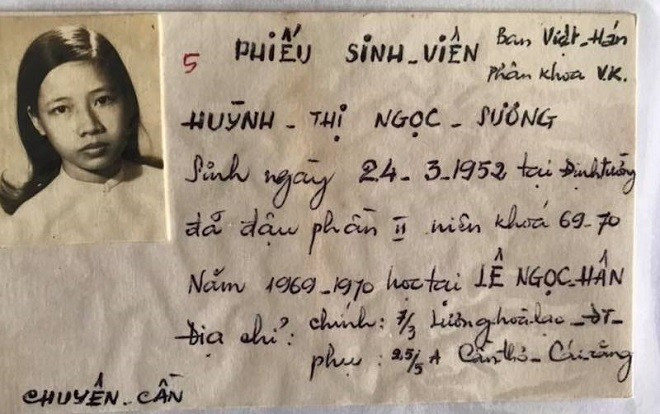 5 PHIẾU SINH-VIÊN Ban Việt-Hán
Phân khoa V.K.
HUỲNH - THỊ NGỌC - SƯƠNG
Sinh ngày 24-3-1952 tại Định tường
đã đậu phần II niên khoá 69-70
Năm 1969-1970 học tại LÊ NGỌC-HÂN
Địa chỉ: chính: 7/3 Lương hoà lạc - ĐT-
phụ: 25/5 A Cần thơ - Cái răng
CHUYÊN-CẦN